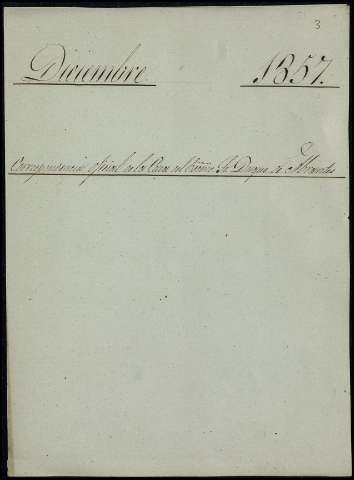 3
Diciembre 1857.
Correspondencia oficial de la Casa del Excmo. Sr. Duque de Abrantes